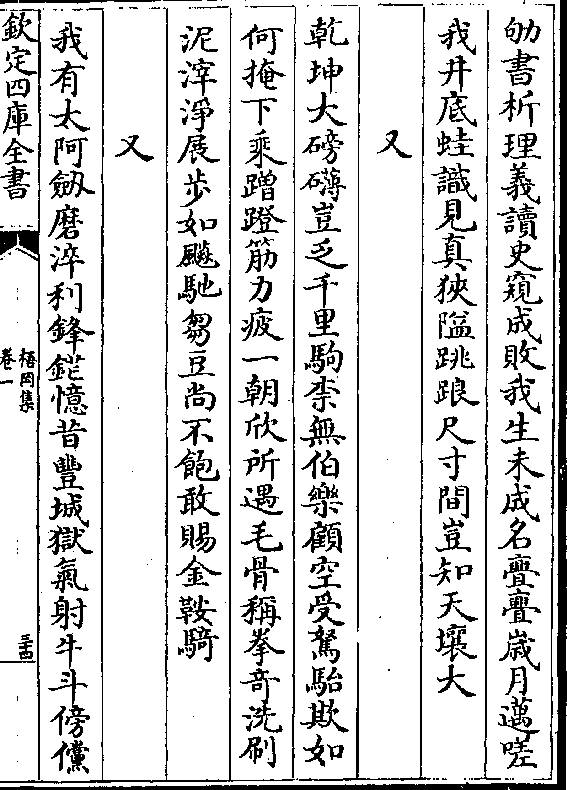 劬書析理義讀史窺成敗我生未成名亹亹嵗月邁嗟
我井底蛙識見真狹隘跳踉尺寸間豈知天壤大
又
乾坤大磅礴豈乏千里駒柰無伯樂顧空受駑駘欺如
何掩下乘蹭蹬筋力疲一朝欣所遇毛骨稱拳奇洗刷
泥滓淨展步如飈馳芻豆尚不飽敢賜金鞍騎
又
我有太阿劔磨淬利鋒鋩憶昔豐城獄氣射牛斗傍儻
欽定四庫全書
梧岡集
卷一
三十四